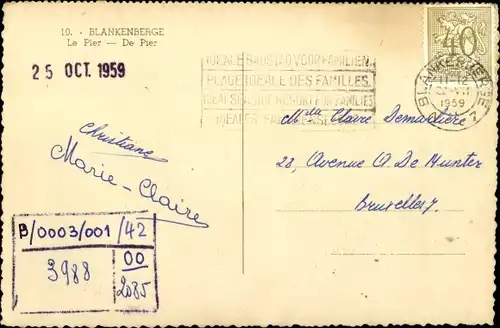 10. - BLANKENBERGE
Le Pier — De Pier
25 OCT. 1959
IDEALE BADSTAD VOOR FAMILIEN
PLAGE IDEALE DES FAMILLES
IDEAL SEASIDE RESORT FOR FAMILIES
40
BLANKENBERGE
11-12
1959
Christiane
Marie-Claire
Melle Claire Demaeliere
28, Avenue A. De Hunter
Bruxelles 7.
B/0003/001/42
3988
00
2085